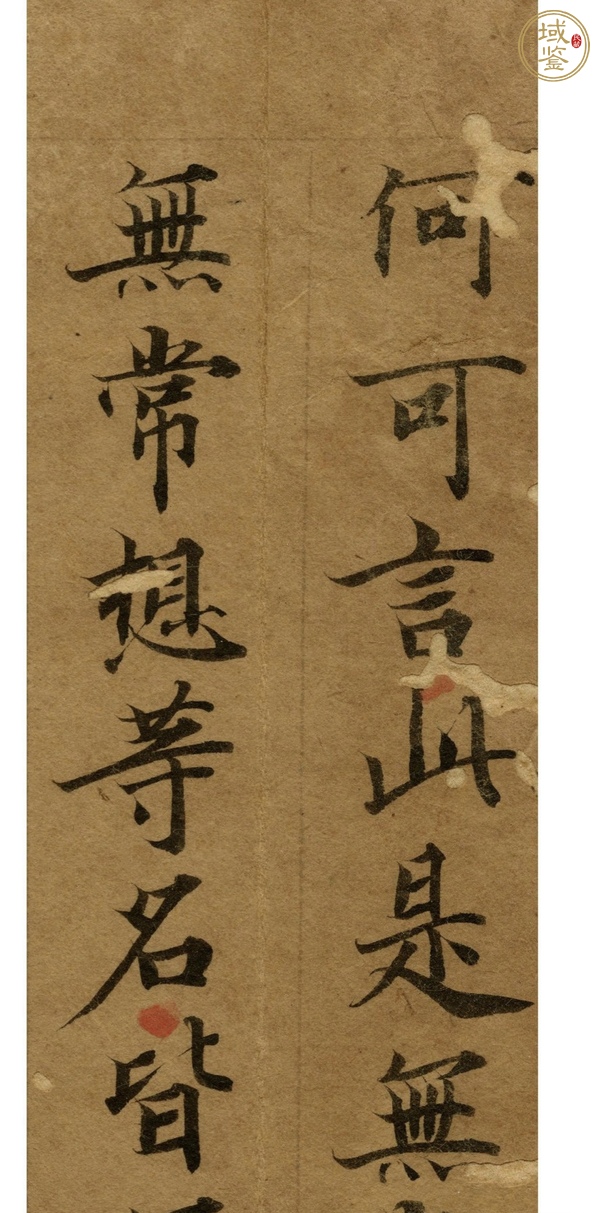 何可言此是無
無常想等名皆
域鉴